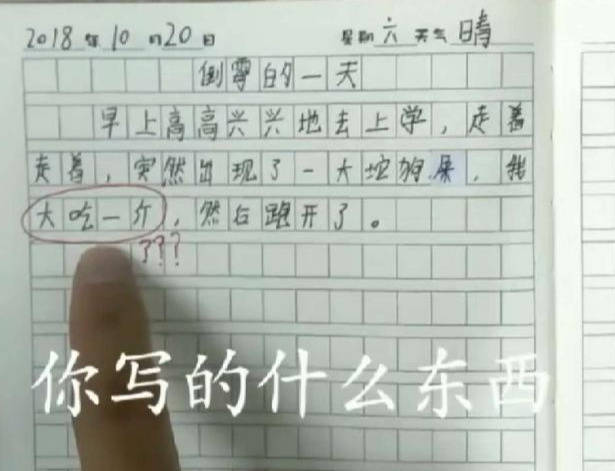 2018年10月20日 星期六 天气晴
倒霉的一天
早上高高兴兴地去上学,走着
走着,突然出现了一大坨狗屎,我
大吃一斤,然后跑开了。
???
你写的什么东西